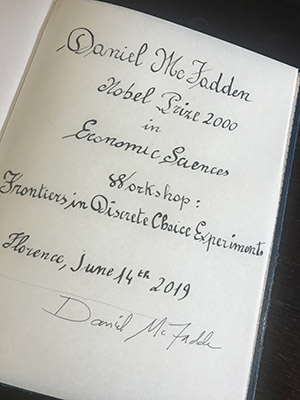 Daniel McFadden
Nobel Prize 2000
in
Economic Sciences
Workshop:
Frontiers in Discrete Choice Experiments
Florence, June 14th 2019
Daniel McFadde